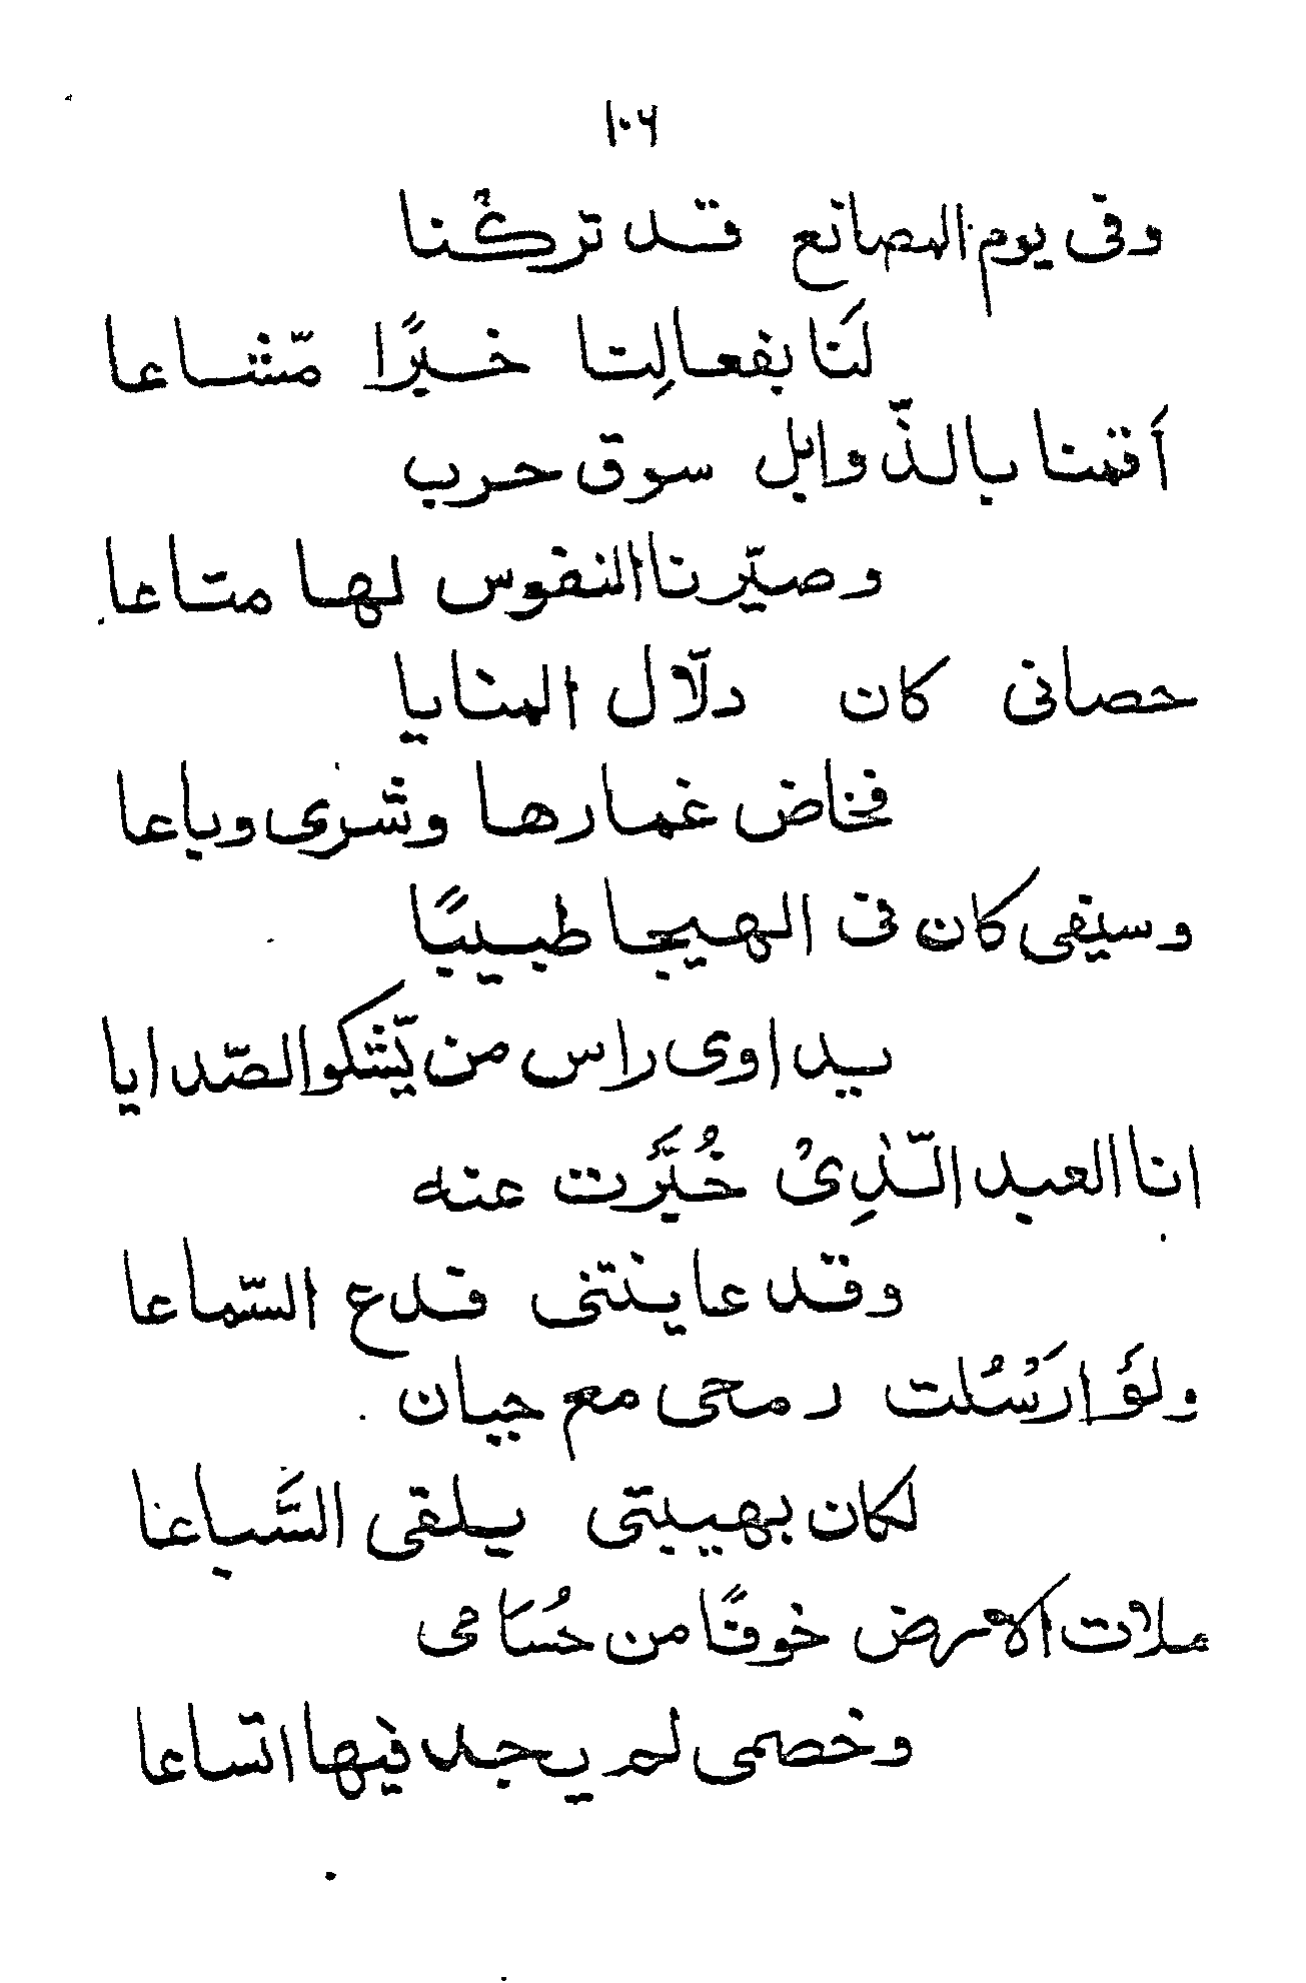 ١٠٦
وفى يوم المصانع قد تركنا
لَنا بفعالِنا خيرًا مّشاعا
أقمنا بالذّوابل سوق حرب
وصيّرنا النفوس لها متاعا
حصانى كان دلّال المنايا
فخاض غمارها وشرى وباعا
وسيفى كان فى الهيجا طبيبًا
يداوى راس من يّشكو الصّدايا
انا العبد الّذِىْ خُيَّرت عنه
وقد عاينتنى قدع السّماعا
ولَوْ ارَسُلت رمحى مع جبان
لكان بهيبتى يلقى السَّباعا
ملات الارض خوفًا من حُسَامى
وخصمى لم يجد فيها اتساعا